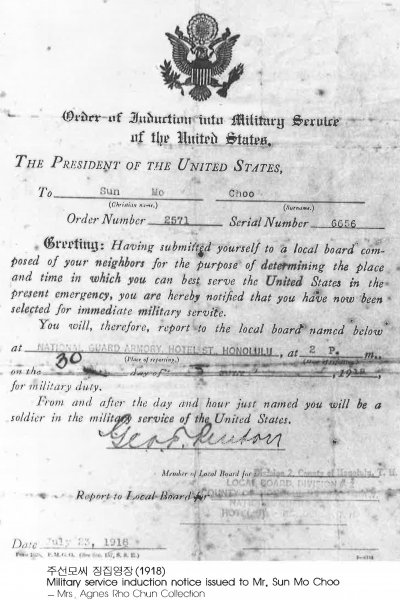 Order of Induction into Military Service
of the United States.
THE PRESIDENT OF THE UNITED STATES,
To Sun Mo Choo
(Christian name.) (Surname.)
Order Number 2571 Serial Number 6656
Greeting: Having submitted yourself to a local board com-
posed of your neighbors for the purpose of determining the place
and time in which you can best serve the United States in the
present emergency, you are hereby notified that you have now been
selected for immediate military service.
You will, therefore, report to the local board named below
at NATIONAL GUARD ARMORY, HOTEL ST. HONOLULU, at 2 P. m.,
(Place of reporting.)
on the 30 day of , 1918
for military duty.
From and after the day and hour just named you will be a
soldier in the military service of the United States.
Member of Local Board for Division 2, County of Honolulu, T. H.
LOCAL BOARD DIVISION
Report to Local Board for COUNTY OF
Date July 23, 1918
주선모씨 징집영장(1918)
Military service induction notice issued to Mr. Sun Mo Choo
– Mrs. Agnes Rho Chun Collection